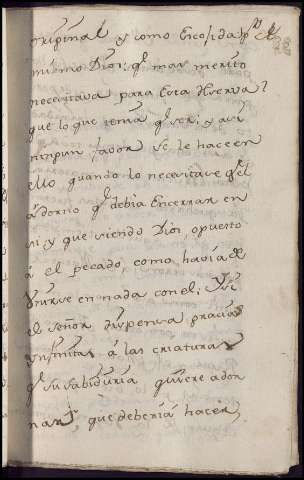 original y como Escojida pr el
mismo Dios: qe mas merito
necesitava para Esta reserva?
que lo que tenia qe ser; y asi
ningun favor se le hace en
ello quando lo necesitase qe el
adorno qe debia Encerrar en
si y que siendo Dios, opuesto
á el pecado, como havia de
Vnirse en nada con el; Y si
el señor dispensa gracias
ynfinitas á las criaturas
qe su sabiduria quiere ador
nar, que deberia hacer,